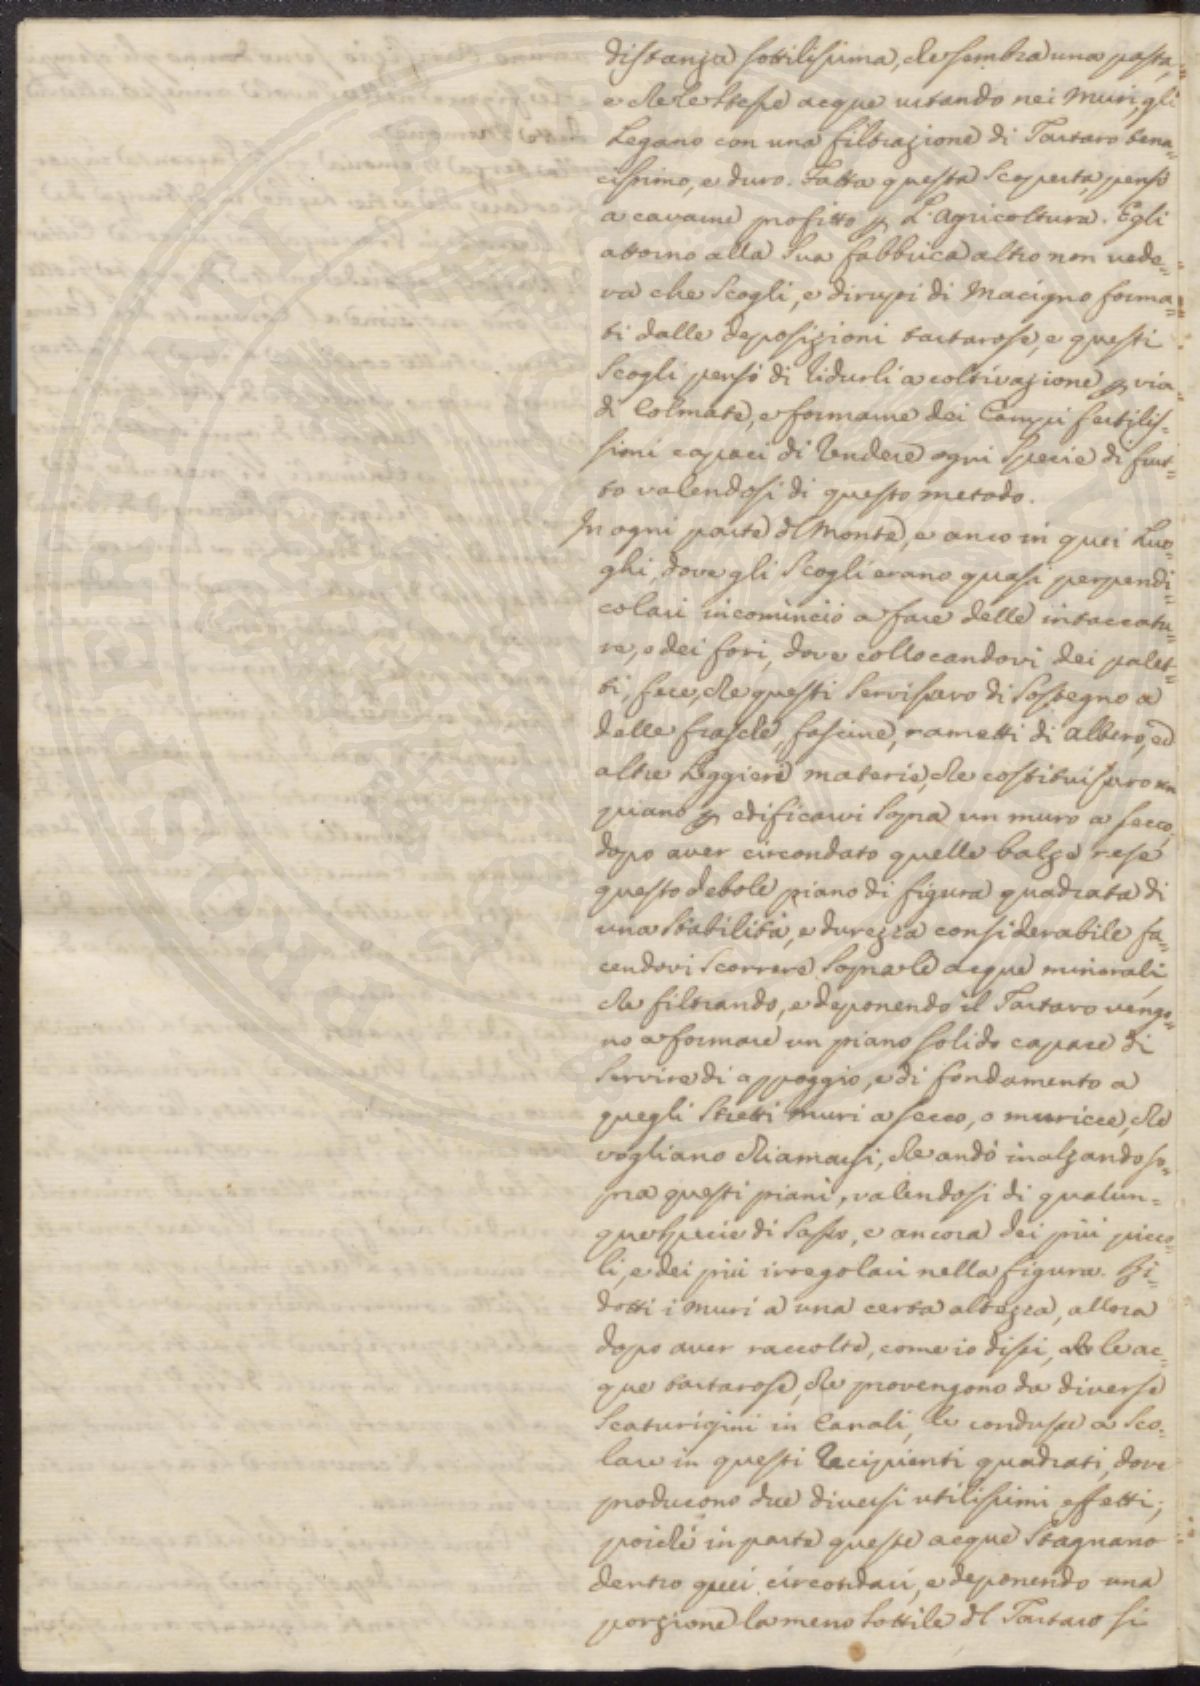 distanza sottilissima, che sembra una pasta,
e che le stesse acque urtando nei Muri, gli
Legano con una filtrazione di Tartaro tena=
cissimo, e duro. Fatta questa Scoperta, pensò
a cavarne profitto p L'Agricoltura. Egli
attorno alla Sua fabbrica altro non vede=
va che Scogli, e dirupi di Macigno forma=
ti dalle deposizioni tartarose, e questi
Scogli pensò di ridurli a coltivazione p via
di Colmate, e formarne dei Campi fertilis=
simi capaci di rendere ogni Specie di frut=
to valendosi di questo metodo.
In ogni parte dl Monte, e anco in quei Luo=
ghi, dove gli Scogli erano quasi perpendi=
colari incominciò a fare delle intaccatu=
re, o dei fori, dove collocandovi dei palet=
ti, fece, che questi servissero di Sostegno a
delle frasche, fascine, rametti di albero, ed
altre Leggieri materie, che costituissero un
piano p edificarvi sopra un muro a secco,
dopo aver circondato quelle balze rese
questo debole piano di figura quadrata di
una Stabilità, e durezza considerabile fa=
cendovi Scorrere sopra le acque minerali,
che filtrando, e deponendo il Tartaro vengo=
no a formare un piano solido capace di
Servire di appoggio, e di fondamento a
quegli Stretti muri a secco, o muricce, che
vogliano chiamarsi, che andò inalzando so=
pra questi piani, valendosi di qualun=
que Specie di Sasso, e ancora dei più picco=
li, e dei più irregolari nella figura. Ri=
dotti i Muri a una certa altezza, allora
dopo aver raccolte, come io dissi, le ac=
que tartarose, che provengono da diverse
Scaturigini in Canali, le condusse a Sco=
lare in questi Recipienti quadrati, dove
producono due diversi utilissimi effetti;
poichè in parte queste acque Stagnano
dentro quei circondari, e deponendo una
porzione la meno sottile dl Tartaro si